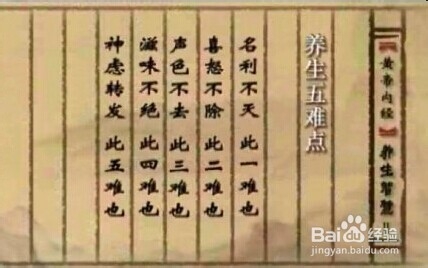 【黄帝内经】养生智慧
养生五难点
名利不灭 此一难也
喜怒不除 此二难也
声色不去 此三难也
滋味不绝 此四难也
神虑转发 此五难也
Baidu 经验
jingyan.baidu.com